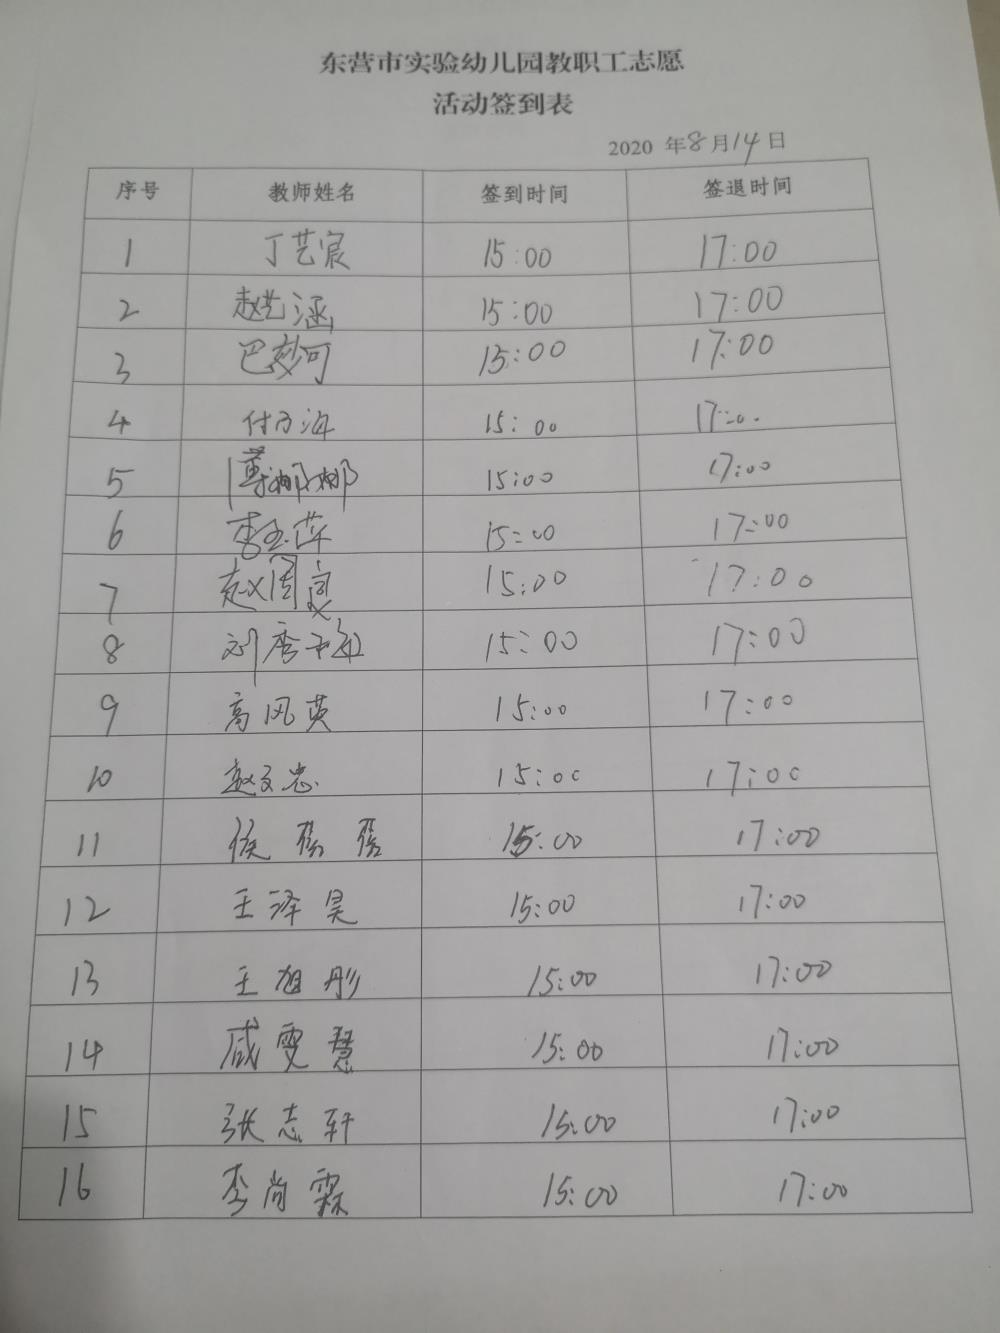 东营市实验幼儿园教职工志愿
活动签到表
2020 年8月14日
序号 教师姓名 签到时间 签退时间
1 丁艺宸 15:00 17:00
2 赵艺涵 15:00 17:00
3 巴妙可 15:00 17:00
4 15:00 17:00
5 娜娜 15:00 17:00
6 李玉萍 15:00 17:00
7 赵国良 15:00 17:00
8 刘秀 15:00 17:00
9 高风英 15:00 17:00
10 赵文忠 15:00 17:00
11 侯 15:00 17:00
12 王泽昊 15:00 17:00
13 王旭彤 15:00 17:00
14 雯慧 15:00 17:00
15 张志轩 15:00 17:00
16 李尚霖 15:00 17:00